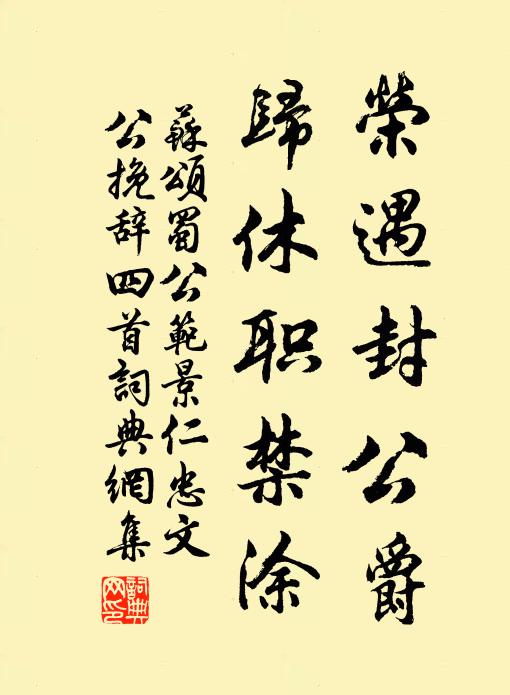 榮遇封公爵
歸休职禁涂
蘇頌蜀公範景仁忠文
公挽辞四首詞典網集
詞典網印